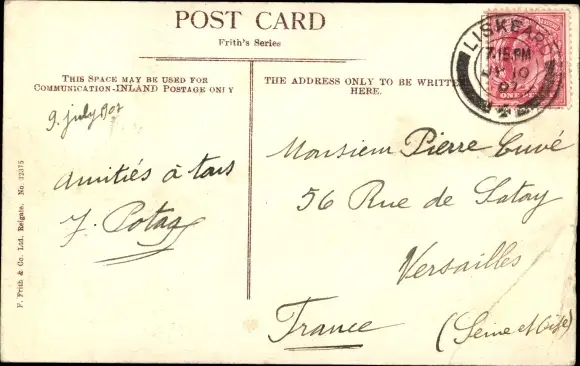 POST CARD
Frith's Series
THIS SPACE MAY BE USED FOR
COMMUNICATION-INLAND POSTAGE ONLY
THE ADDRESS ONLY TO BE WRITTEN
HERE.
LISKEARD
7.15 PM
JY 10
07
ONE PENNY
9. july 1907
Amitiés à tous
Monsieur Pierre Cuvé
56 Rue de Satory
Versailles
France
(Seine et Oise)
F. Frith & Co. Ltd. Reigate. No. 32375